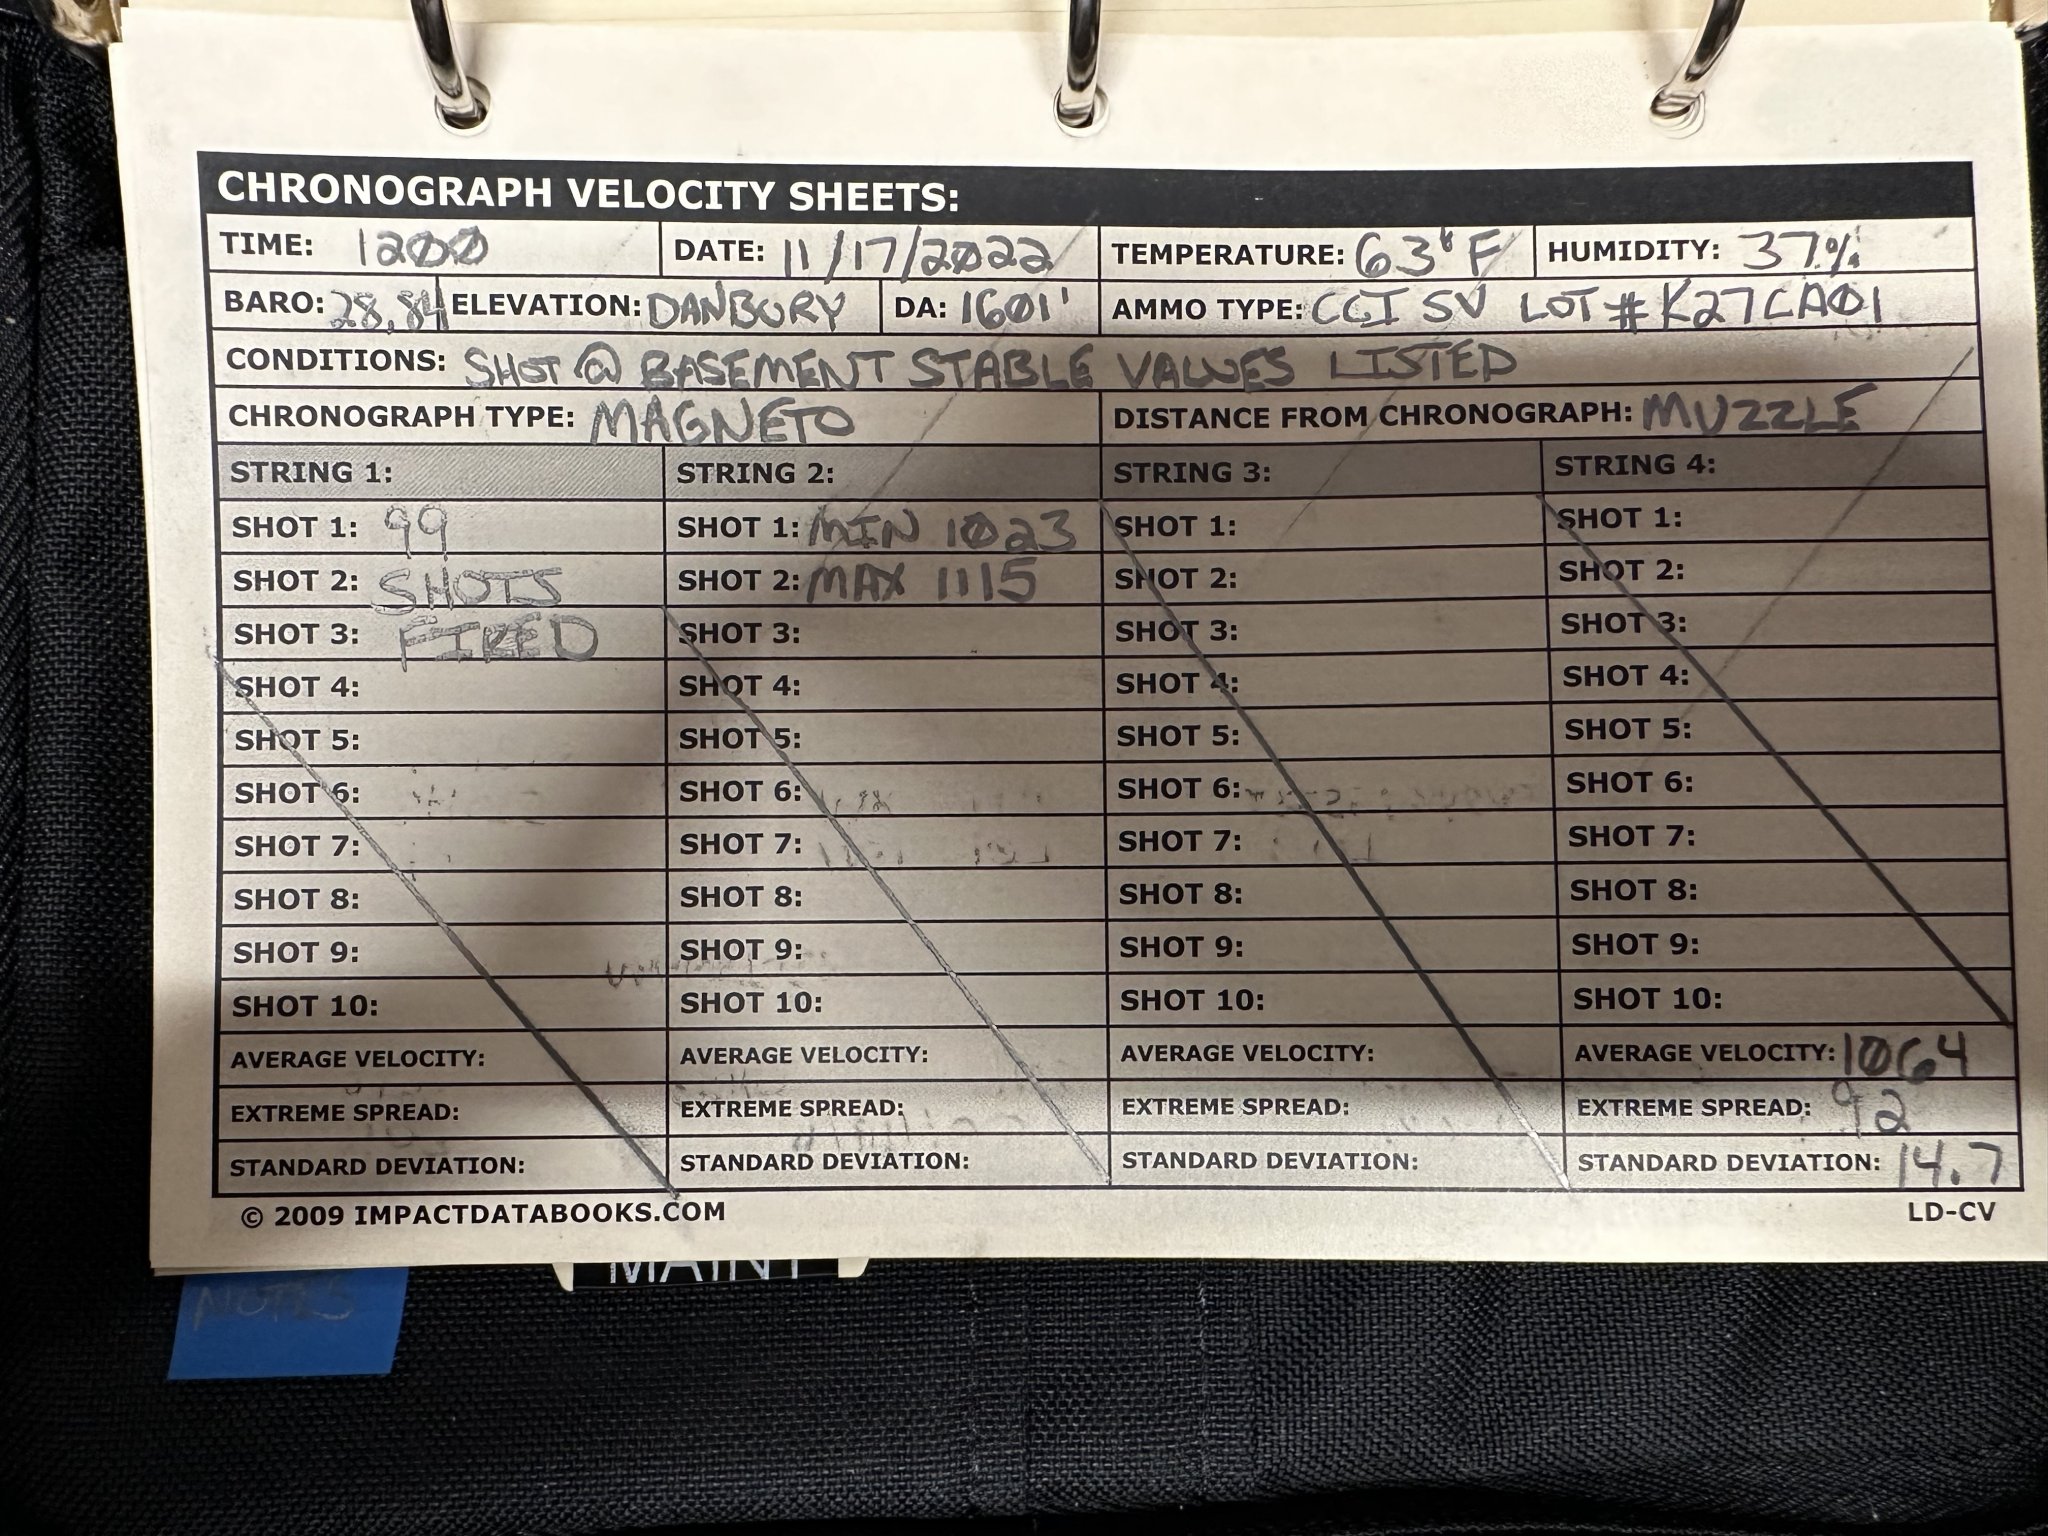 CHRONOGRAPH VELOCITY SHEETS:
TIME: 1200 DATE: 11/17/2022 TEMPERATURE: 63°F HUMIDITY: 37%
BARO: 28.84 ELEVATION: DANBURY DA: 1601' AMMO TYPE: CCI SV LOT # K27CA01
CONDITIONS: SHOT @ BASEMENT STABLE VALUES LISTED
CHRONOGRAPH TYPE: MAGNETO DISTANCE FROM CHRONOGRAPH: MUZZLE
STRING 1: STRING 2: STRING 3: STRING 4:
SHOT 1: 99 SHOT 1: MIN 1023 SHOT 1: SHOT 1:
SHOT 2: SHOTS SHOT 2: MAX 1115 SHOT 2: SHOT 2:
SHOT 3: FIRED SHOT 3: SHOT 3: SHOT 3:
SHOT 4: SHOT 4: SHOT 4: SHOT 4:
SHOT 5: SHOT 5: SHOT 5: SHOT 5:
SHOT 6: SHOT 6: SHOT 6: SHOT 6:
SHOT 7: SHOT 7: SHOT 7: SHOT 7:
SHOT 8: SHOT 8: SHOT 8: SHOT 8:
SHOT 9: SHOT 9: SHOT 9: SHOT 9:
SHOT 10: SHOT 10: SHOT 10: SHOT 10:
AVERAGE VELOCITY: AVERAGE VELOCITY: AVERAGE VELOCITY: AVERAGE VELOCITY: 1064
EXTREME SPREAD: EXTREME SPREAD: EXTREME SPREAD: EXTREME SPREAD: 92
STANDARD DEVIATION: STANDARD DEVIATION: STANDARD DEVIATION: STANDARD DEVIATION: 14.7
© 2009 IMPACTDATABOOKS.COM LD-CV
MAINT
NOTES